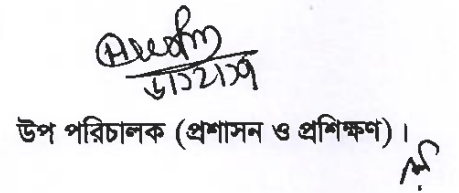 ৬/১২/১৭
উপ পরিচালক (প্রশাসন ও প্রশিক্ষণ)।